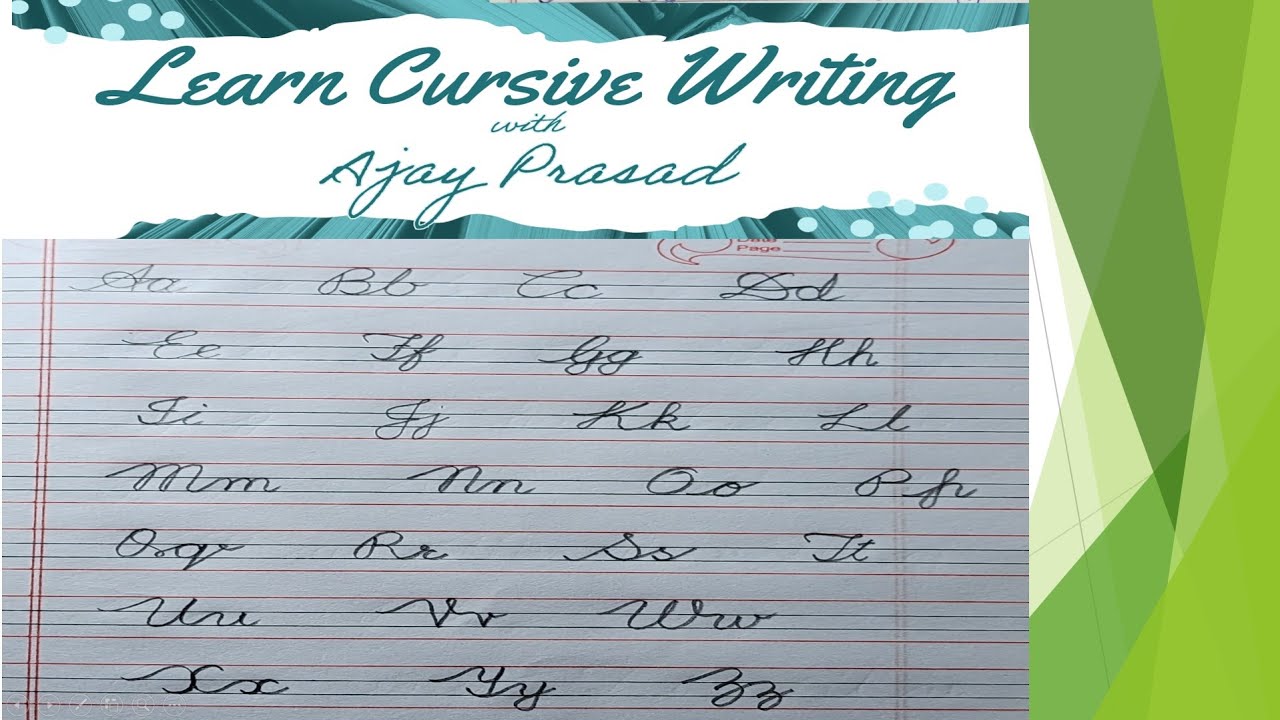 Learn Cursive Writing
with
Ajay Prasad
Page
Aa Bb Cc Dd
Ee Ff Gg Hh
Ii Jj Kk Ll
Mm Nn Oo Pp
Qq Rr Ss Tt
Uu Vv Ww
Xx Yy Zz